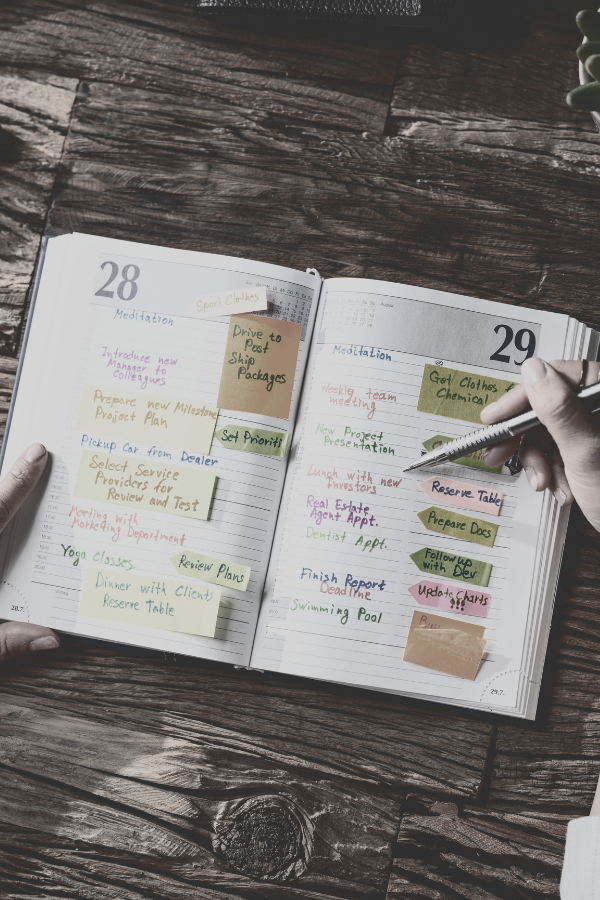 28
Sport Clothes
Meditation
Drive to
Post
Ship
Packages
Introduce new
Manager to
Colleagues
Prepare new Milestone
Project Plan
Set Prioriti
Pickup Car from Dealer
Select Service
Providers for
Review and Test
Meeting with
Marketing Department
Yoga Classes
Review Plans
Dinner with Clients
Reserve Table
28.7.
29
Meditation
Get Clothes
Chemical
Weekly team
meeting
New Project
Presentation
Lunch with new
Investors
Reserve Table
Real Estate
Agent Appt.
Prepare Docs
Dentist Appt.
Follow up
with Dev
Finish Report
Deadline
Update Charts
!!!
Swimming Pool
29.7.